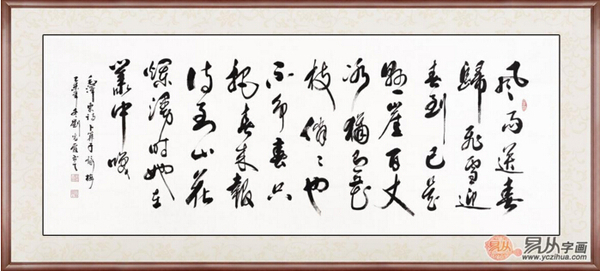 風雨送春
歸飛雪迎
春到已是
懸崖百丈
冰猶有花
枝俏〻也
不爭春只
把春來報
待到山花
爛漫時她在
叢中笑
毛澤東詞卜算子詠梅
乙未年
易从字画
www.yczihua.com